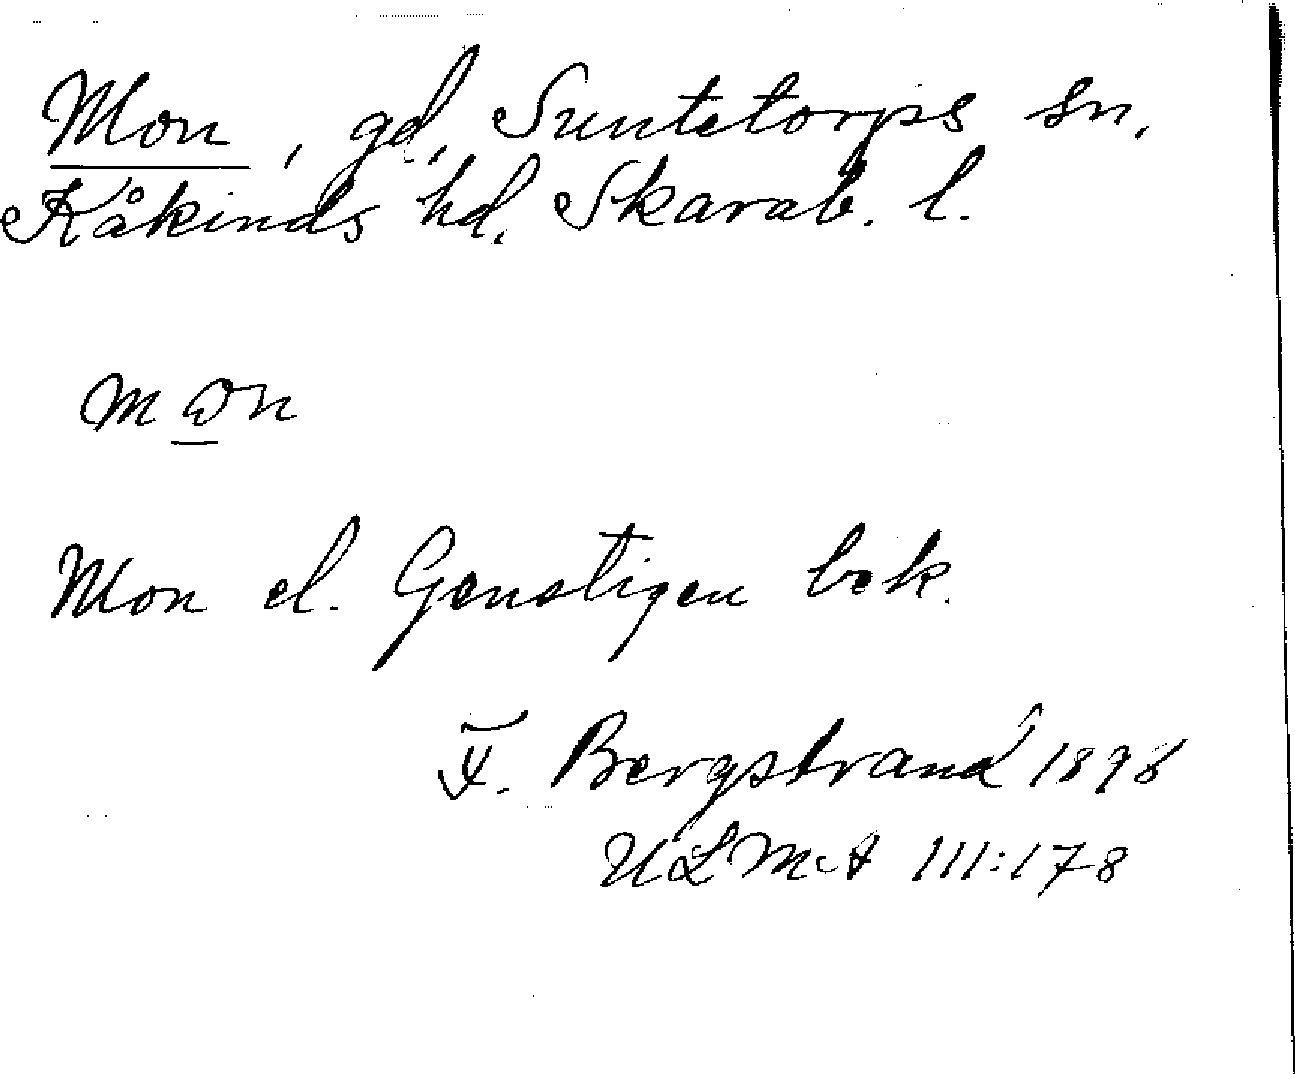 Mon, gd, Suntetorps sn,
Kåkinds hd. Skarab. l.
mωn
Mon el. Genstigen bek.
F. Bergstrand 1898
ULMA 111:178